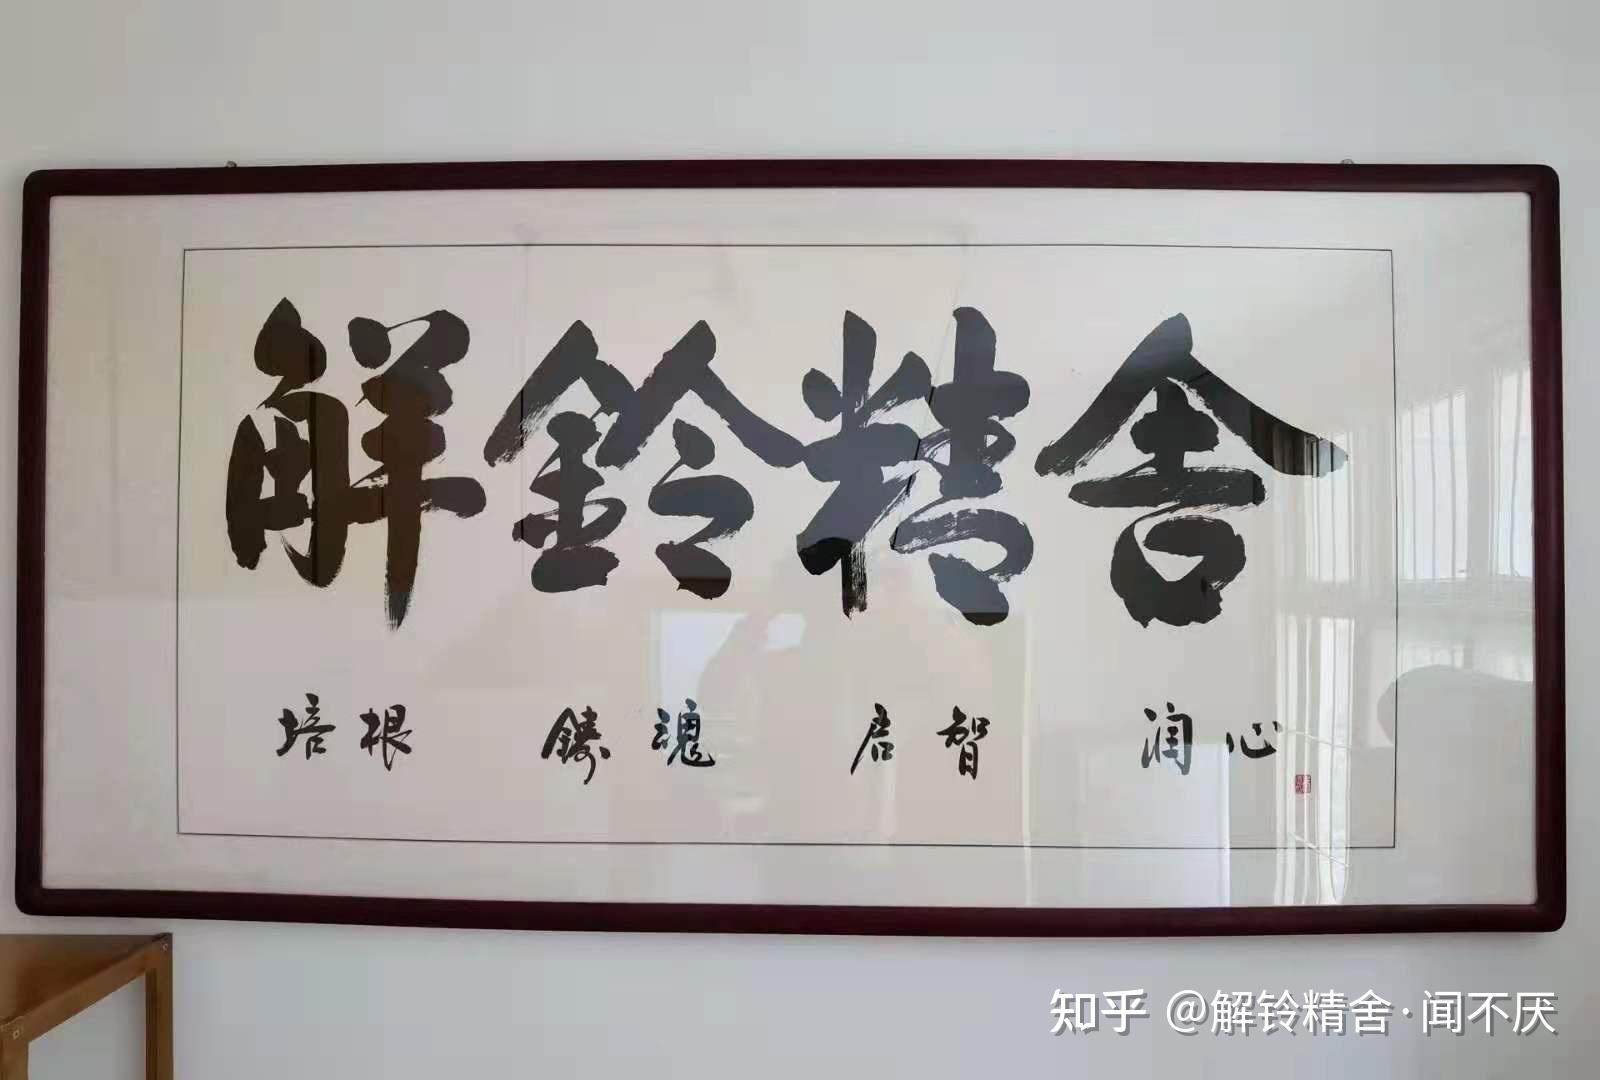 解鈴精舍
培根 鑄魂 启智 润心
知乎 @解铃精舍·闻不厌